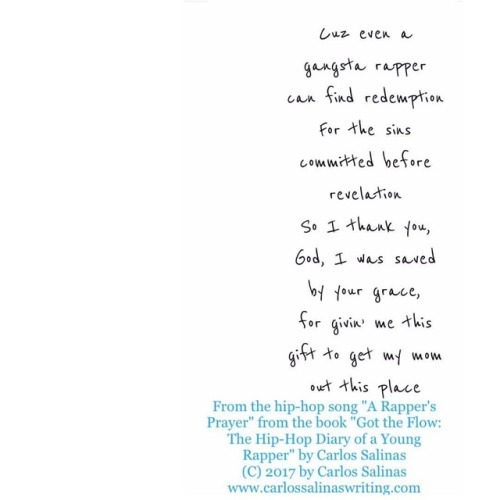 Cuz even a
gangsta rapper
can find redemption
For the sins
committed before
revelation
So I thank you,
God, I was saved
by your grace,
for givin' me this
gift to get my mom
out this place
From the hip-hop song "A Rapper's
Prayer" from the book "Got the Flow:
The Hip-Hop Diary of a Young
Rapper" by Carlos Salinas
(C) 2017 by Carlos Salinas
www.carlossalinaswriting.com